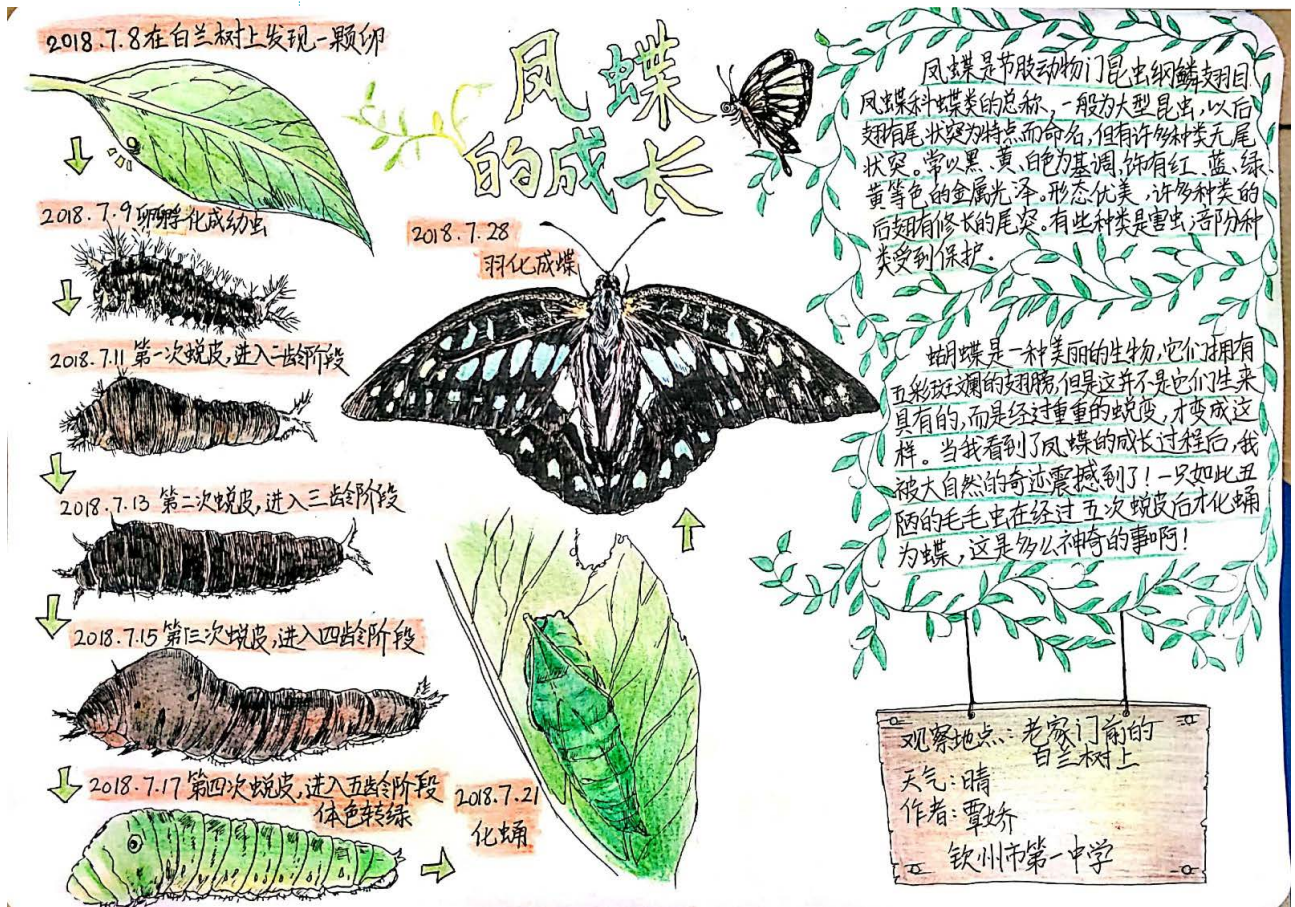 2018.7.8在白兰树上发现一颗卵
凤蝶
的成长
2018.7.9卵孵化成幼虫
2018.7.11 第一次蜕皮,进入二龄阶段
2018.7.13 第二次蜕皮,进入三龄阶段
2018.7.15 第三次蜕皮,进入四龄阶段
2018.7.17 第四次蜕皮,进入五龄阶段
体色转绿
2018.7.21
化蛹
2018.7.28
羽化成蝶
凤蝶是节肢动物门昆虫纲鳞翅目
凤蝶科蝶类的总称,一般为大型昆虫,以后
翅有尾状突为特点而命名,但有许多种类无尾
状突。常以黑、黄、白色为基调,饰有红、蓝、绿、
黄等色的金属光泽。形态优美,许多种类的
后翅有修长的尾突。有些种类是害虫,部分种
类受到保护.
蝴蝶是一种美丽的生物,它们拥有
五彩斑斓的翅膀,但是这并不是它们生来
具有的,而是经过重重的蜕变,才变成这
样。当我看到了凤蝶的成长过程后,我
被大自然的奇迹震撼到了!一只如此丑
陋的毛毛虫在经过五次蜕皮后才化蛹
为蝶,这是多么神奇的事啊!
观察地点:老家门前的
白兰树上
天气:晴
作者:覃娇
钦州市第一中学